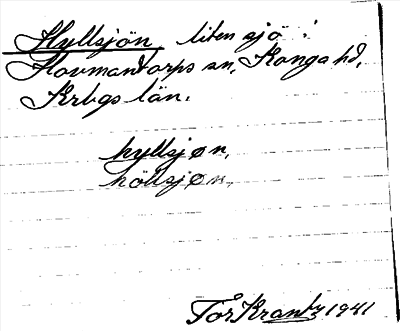 Hyllsjön liten sjö i
Hovmantorps sn, Konga hd,
Krbgs län.
hyllsjøn,
höllsjøn,
Tor Krantz 1941